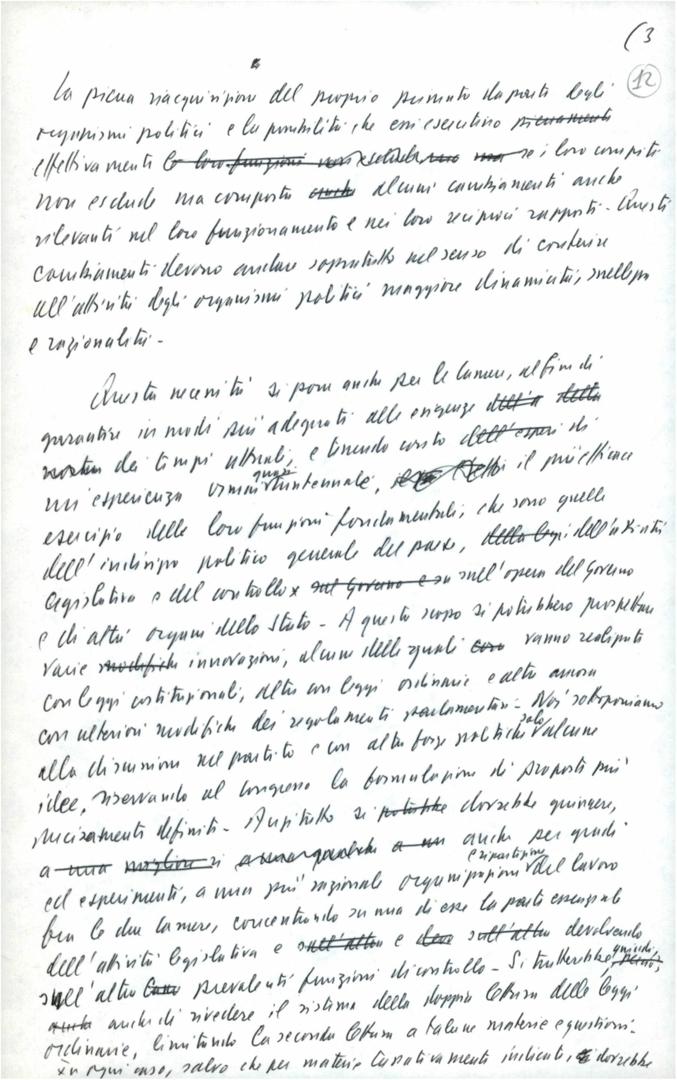 (3
12
La piena riacquisizione del proprio primato da parte degli
organismi politici e la possibilità che essi esercitino pienamente
effettivamente le loro funzioni non esclude, ma se i loro compiti
non esclude ma comporta anche alcuni cambiamenti anche
rilevanti nel loro funzionamento e nei loro reciproci rapporti - Questi
cambiamenti devono andare soprattutto nel senso di conferire
all'attività degli organismi politici maggiore dinamicità, snellezza
e razionalità -
Questa necessità si pone anche per le Camere, al fine di
garantire in modi più adeguati alle esigenze dell'a della
nostra dei tempi attuali, e tenendo conto dell'esperi di
un'esperienza ormai quasi trentennale, il più efficace
esercizio delle loro funzioni fondamentali, che sono quelle
dell'indirizzo politico generale del paese, della legi dell'attività
legislativa e del controllo x sul Governo e su sull'opera del Governo
e di altri organi dello Stato - A questo scopo si potrebbero prospettare
varie modifiche innovazioni, alcune delle quali vanno realizzate
con leggi costituzionali, altre con leggi ordinarie e altre ancora
con ulteriori modifiche dei regolamenti parlamentari - Noi sottoponiamo
alla discussione nel partito e con altre forze politiche solo alcune
idee, riservando al congresso la formulazione di proposte più
precisamente definite - Anzitutto si potrebbe dovrebbe giungere,
a una migliore si a una qualche a un anche per gradi
ed esperimenti, a una più razionale organizzazione e ripartizione del lavoro
fra le due Camere, concentrando su una di esse la parte essenziale
dell'attività legislativa e sull'altra e deve sull'altra devolvendo
sull'altra Cam prevalenti funzioni di controllo - Si tratterebbe, quindi, perciò,
anche anche di rivedere il sistema della doppia lettura delle leggi
ordinarie, limitando la seconda lettura a talune materie e questioni -
x in ogni caso, salvo che per materie tassativamente indicate, dovrebbe